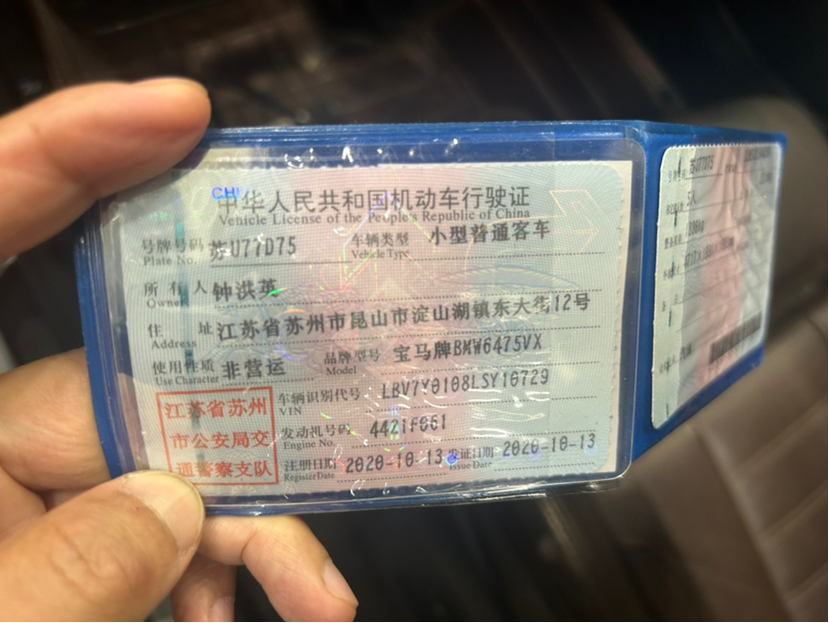 中华人民共和国机动车行驶证
Vehicle License of the People's Republic of China
号牌号码 Plate No. 苏U77D75 车辆类型 Vehicle Type 小型普通客车
所有人 Owner 钟洪英
住址 Address 江苏省苏州市昆山市淀山湖镇东大街12号
使用性质 Use Character 非营运 品牌型号 Model 宝马牌BMW6475VX
车辆识别代号 VIN LBV7Y0108LSY10729
江苏省苏州
市公安局交
通警察支队
发动机号码 Engine No. 4421F661
注册日期 Register Date 2020-10-13 发证日期 Issue Date 2020-10-13